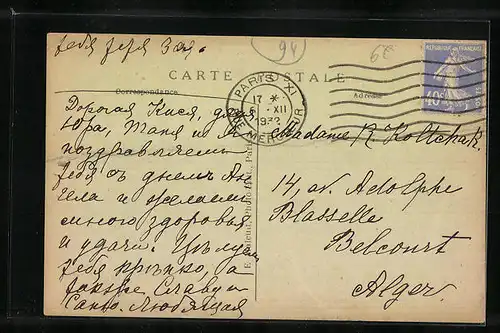 тебя тетя Зоя.
94
6E
CARTE POSTALE
Correspondance
Adresse
PARIS XI
17
XII
1932
RÉPUBLIQUE FRANÇAISE
40c
Дорогая Кися, дядя
Юра, Таня и я
поздравляем
тебя съ днемъ Ан-
гела и желаемъ
много здоровья
и удачи. Цѣлуем
тебя крѣпко, а
также Славу и
Любящая
Madame R. Koltchak
14, av. Adolphe
Blasselle
Belcourt
Alger.